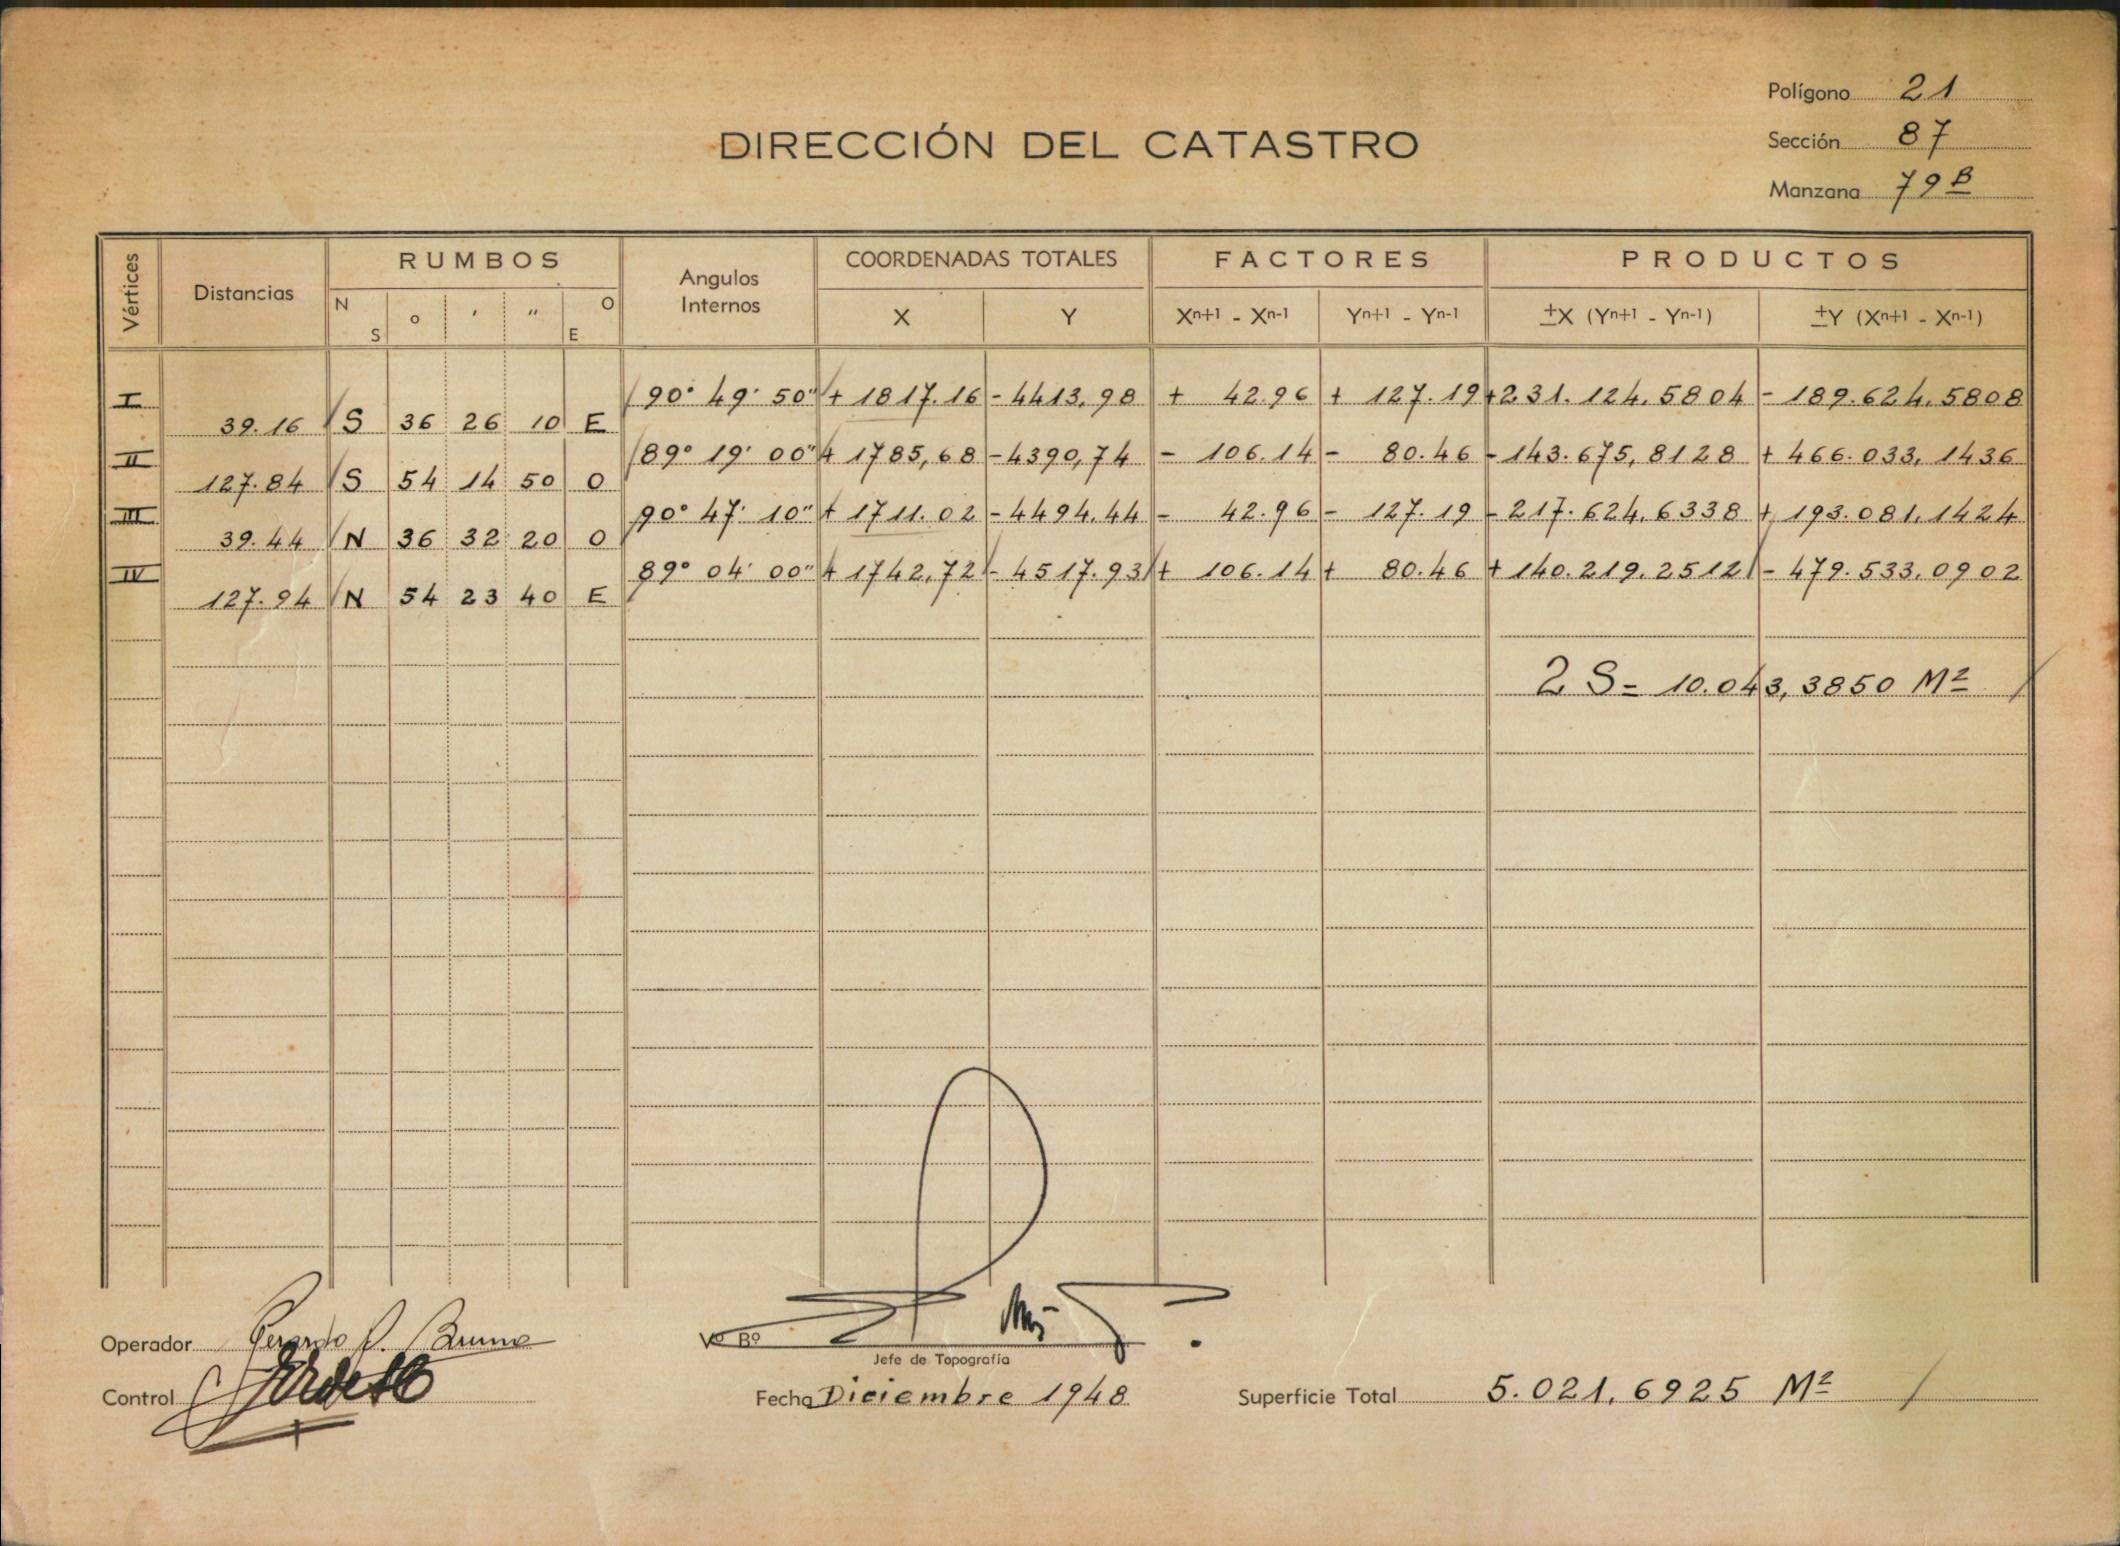 Polígono 21
DIRECCIÓN DEL CATASTRO
Sección 87
Manzana 79 B
Vértices Distancias RUMBOS Angulos Internos COORDENADAS TOTALES FACTORES PRODUCTOS
N S o ' " O E X Y Xn+1 - Xn-1 Yn+1 - Yn-1 ±X (Yn+1 - Yn-1) ±Y (Xn+1 - Xn-1)
I 90° 49' 50" + 1817.16 - 4413,98 + 42.96 + 127.19 +231.124,5804 - 189.624,5808
39.16 S 36 26 10 E
II 89° 19' 00" + 1785,68 - 4390,74 - 106.14 - 80.46 - 143.675,8128 + 466.033,1436
127.84 S 54 14 50 O
III 90° 47' 10" + 1711.02 - 4494.44 - 42.96 - 127.19 - 217.624,6338 + 193.081,1424
39.44 N 36 32 20 O
IV 89° 04' 00" + 1742,72 - 4517.93 + 106.14 + 80.46 + 140.219.2512 - 479.533,0902
127.94 N 54 23 40 E
2 S = 10.043,3850 M²
Operador Gerardo
Vº Bº
Jefe de Topografía
Control
Fecha Diciembre 1948
Superficie Total 5.021,6925 M²